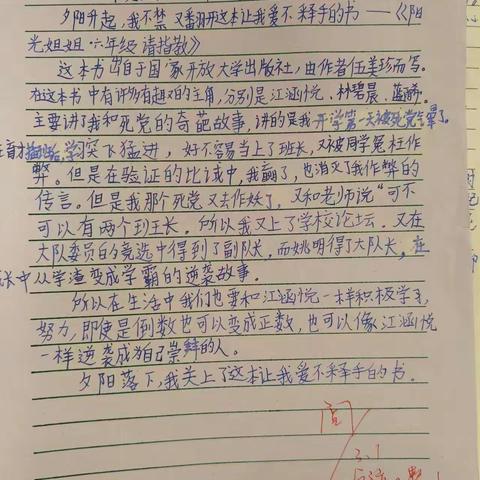 夕阳升起,我不禁又翻开这本让我爱不释手的书——《阳
光姐姐 六年级 请指教》
这本书出自于国家开放大学出版社,由作者伍美珍而写。
在这本书中有许多有趣的主角,分别是江涵悦、林碧晨、蓝
主要讲了我和死党的奇葩故事,讲的是我开学第一天被死党
学习突飞猛进,好不容易当上了班长,又被同学冤枉作
弊。但是在验证的比试中,我赢了,也消灭了我作弊的
传言。但是我那个死党又去作妖了,又和老师说“可不
可以有两个班长。所以我又上了学校论坛。又在
大队委员的竞选中得到了副队长,而姚明得了大队长,在
长中从学渣变成学霸的逆袭故事。
所以在生活中我们也要和江涵悦一样积极学习,
努力,即使是倒数也可以变成正数,也可以像江涵悦
一样逆袭成为自己崇拜的人。
夕阳落下,我关上了这本让我爱不释手的书。
阅
3.1